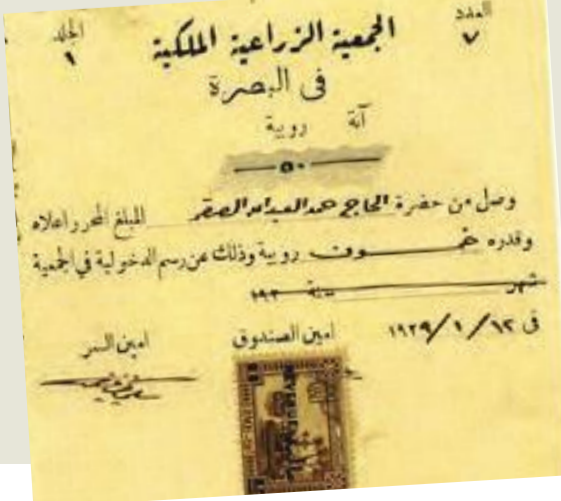 العدد
٧
المجلد
١
الجمعية الزراعية الملكية
فى البصرة
آنة روبية
٥٠
وصل من حضرة الحاج حمد العبدالله الصقر المبلغ المحرر اعلاه
وقدره خمسون روبية وذلك عن رسم الدخولية في الجمعية
شهر سنة ١٩٢
فى ١٢/١/١٩٢٩
امين الصندوق
امين السر